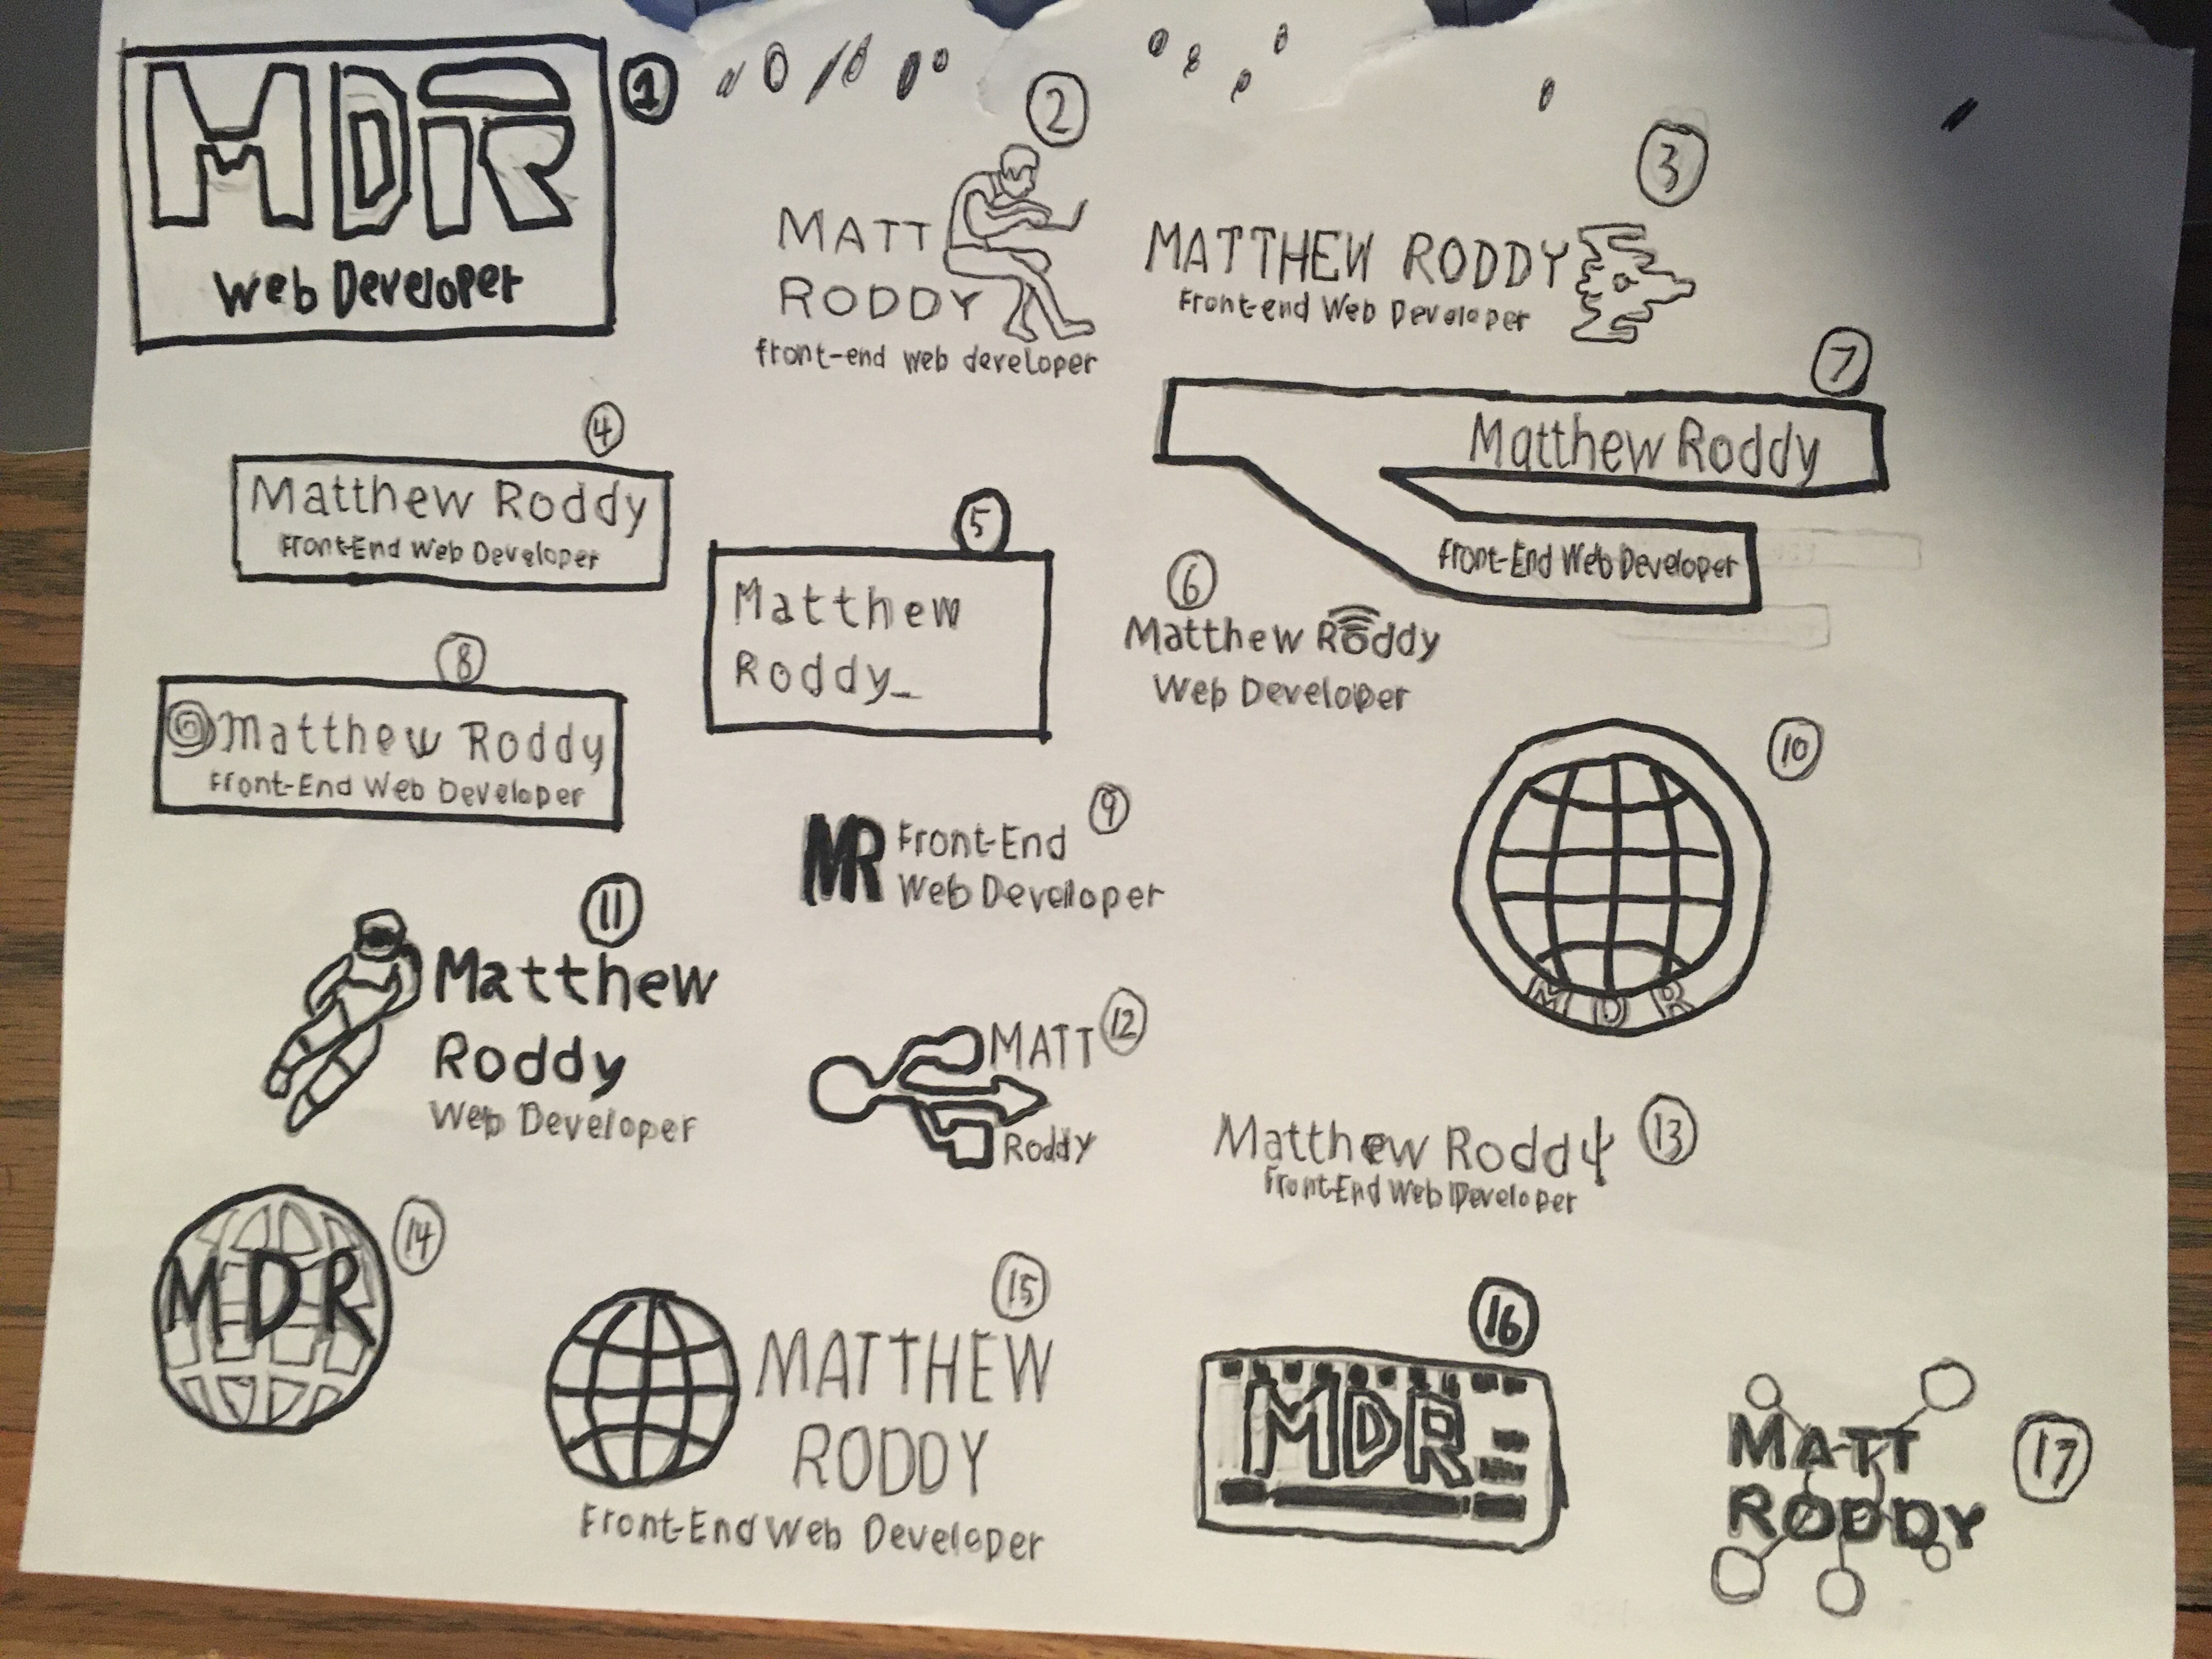 MDR
Web Developer
1
2
MATT
RODDY
front-end web developer
3
MATTHEW RODDY
Front-end Web Developer
4
Matthew Roddy
Front-End Web Developer
5
Matthew
Roddy_
6
Matthew Roddy
Web Developer
7
Matthew Roddy
Front-End Web Developer
8
Matthew Roddy
Front-End Web Developer
9
MR Front-End
Web Developer
10
MDR
11
Matthew
Roddy
Web Developer
12
MATT
Roddy
13
Matthew Roddy
Front-End Web Developer
14
MDR
15
MATTHEW
RODDY
Front-End Web Developer
16
MDR
17
MATT
RODDY